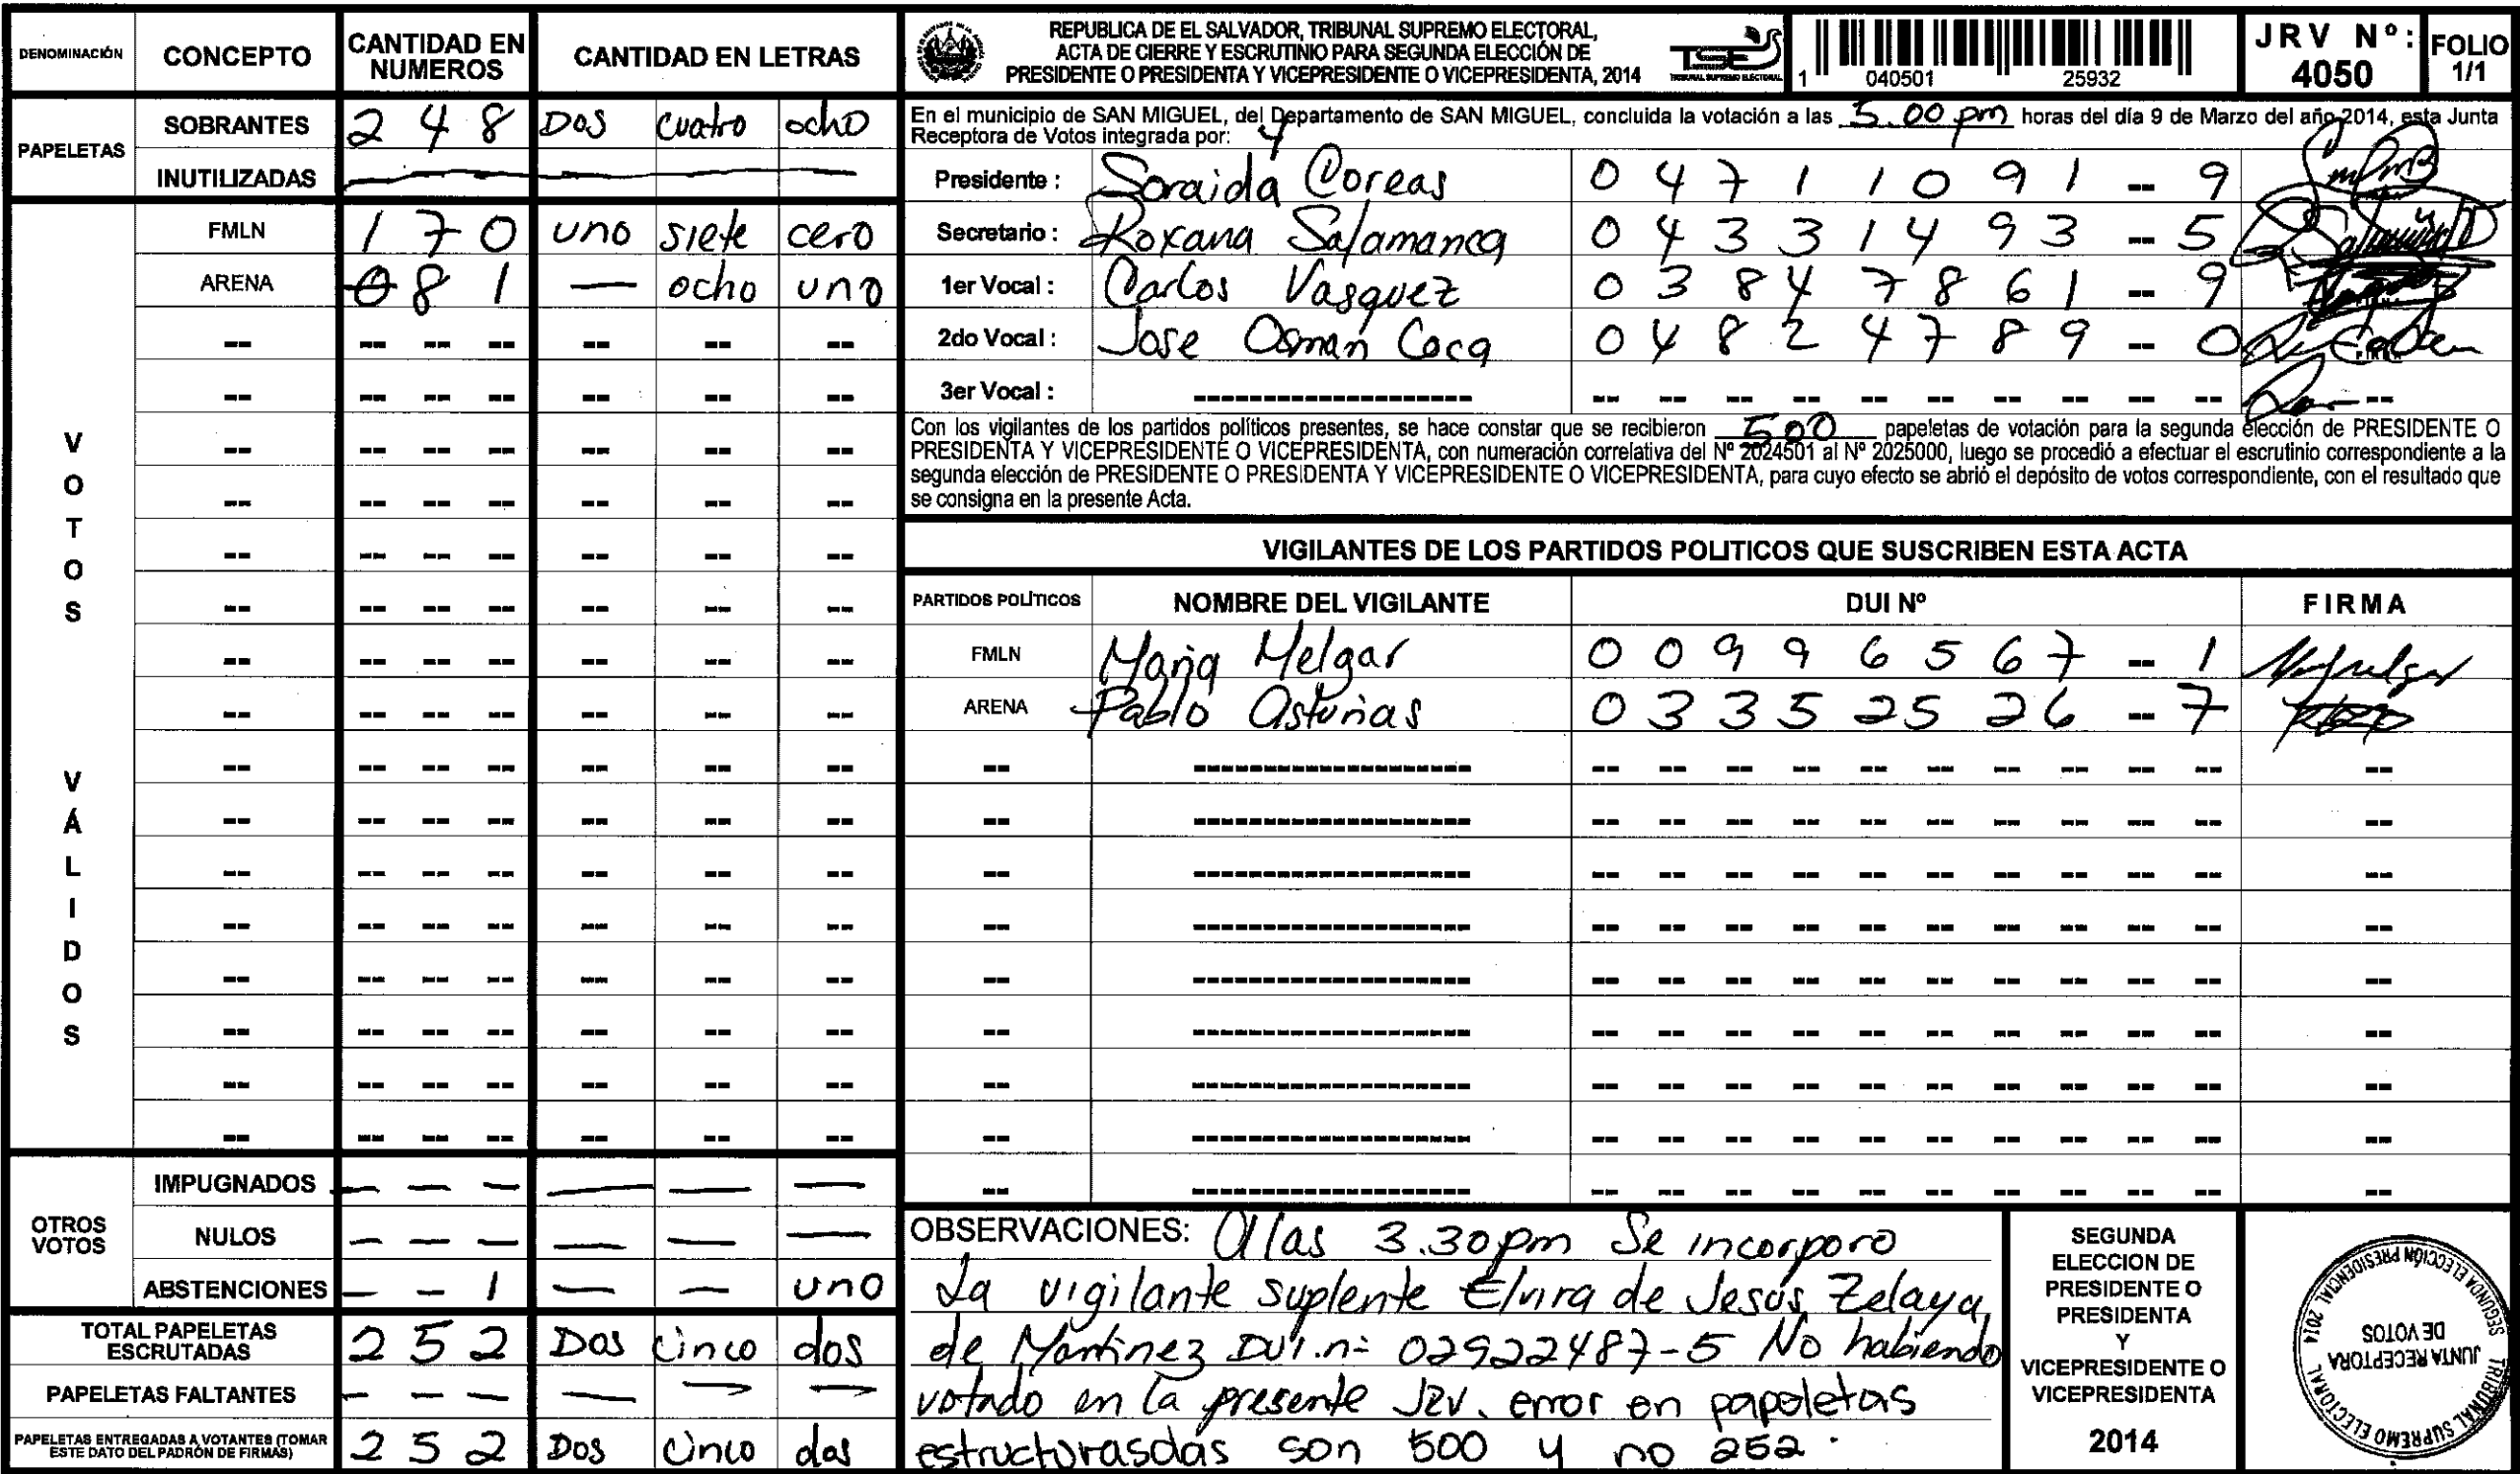 DENOMINACIÓN CONCEPTO CANTIDAD EN NUMEROS CANTIDAD EN LETRAS
PAPELETAS
SOBRANTES 2 4 8 Dos cuatro ocho
INUTILIZADAS
VOTOS VÁLIDOS
FMLN 1 7 0 uno siete cero
ARENA 0 8 1 — ocho uno
OTROS VOTOS
IMPUGNADOS — — — — — —
NULOS — — — — — —
ABSTENCIONES — — 1 — — uno
TOTAL PAPELETAS ESCRUTADAS 2 5 2 Dos cinco dos
PAPELETAS FALTANTES — — — — — —
PAPELETAS ENTREGADAS A VOTANTES (TOMAR ESTE DATO DEL PADRÓN DE FIRMAS) 2 5 2 Dos cinco dos
REPUBLICA DE EL SALVADOR, TRIBUNAL SUPREMO ELECTORAL,
ACTA DE CIERRE Y ESCRUTINIO PARA SEGUNDA ELECCIÓN DE
PRESIDENTE O PRESIDENTA Y VICEPRESIDENTE O VICEPRESIDENTA, 2014
TSE
TRIBUNAL SUPREMO ELECTORAL
1 040501 25932
JRV Nº: 4050
FOLIO 1/1
En el municipio de SAN MIGUEL, del Departamento de SAN MIGUEL, concluida la votación a las 5.00 pm horas del día 9 de Marzo del año 2014, esta Junta
Receptora de Votos integrada por: 4
Presidente : Soraida Coreas 0 4 7 1 1 0 9 1 -- 9
Secretario : Roxana Salamanca 0 4 3 3 1 4 9 3 -- 5
1er Vocal : Carlos Vasquez 0 3 8 4 7 8 6 1 -- 9
2do Vocal : Jose Osman Coca 0 4 8 2 4 7 8 9 -- 0
3er Vocal :
Con los vigilantes de los partidos políticos presentes, se hace constar que se recibieron 500 papeletas de votación para la segunda elección de PRESIDENTE O
PRESIDENTA Y VICEPRESIDENTE O VICEPRESIDENTA, con numeración correlativa del Nº 2024501 al Nº 2025000, luego se procedió a efectuar el escrutinio correspondiente a la
segunda elección de PRESIDENTE O PRESIDENTA Y VICEPRESIDENTE O VICEPRESIDENTA, para cuyo efecto se abrió el depósito de votos correspondiente, con el resultado que
se consigna en la presente Acta.
VIGILANTES DE LOS PARTIDOS POLITICOS QUE SUSCRIBEN ESTA ACTA
PARTIDOS POLÍTICOS NOMBRE DEL VIGILANTE DUI Nº FIRMA
FMLN Maria Melgar 0 0 9 9 6 5 6 7 -- 1
ARENA Pablo Asturias 0 3 3 5 2 5 2 6 -- 7
OBSERVACIONES: A las 3.30pm Se incorporo
La vigilante suplente Elvira de Jesús Zelaya
de Martinez DUI.n= 02922487-5 No habiendo
votado en la presente JRV. error en papeletas
estructurasdas son 500 y no 252.
SEGUNDA
ELECCION DE
PRESIDENTE O
PRESIDENTA
Y
VICEPRESIDENTE O
VICEPRESIDENTA
2014
SEGUNDA ELECCIÓN PRESIDENCIAL 2014
JUNTA RECEPTORA
DE VOTOS
TRIBUNAL SUPREMO ELECTORAL